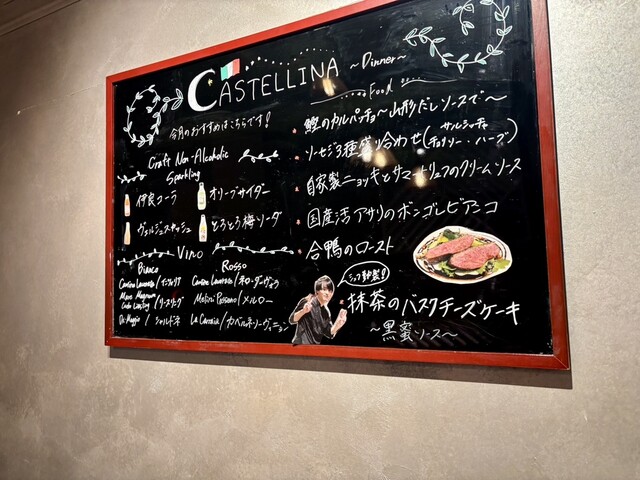 CASTELLINA ~Dinner~
今月のおすすめはこちらです!
Craft Non-Alcoholic
Sparkling
伊良コーラ
オリーブサイダー
ヴェルジュスカッシュ
とろとろ梅ソーダ
Vino
Bianco
Rosso
/インツォリア
/ネロ・ダーヴォラ
/リースリング
/メルロー
Di Maggio/シャルドネ
/カベルネ・ソーヴィニョン
Food
鰹のカルパッチョ~山形だしソースで~
ソーセージ3種盛り合わせ(サルシッチャ
チョリソー・ハーブ)
自家製ニョッキとサマートリュフのクリームソース
国産活アサリのボンゴレビアンコ
合鴨のロースト
シェフ特製!!
抹茶のバスクチーズケーキ
~黒蜜ソース~